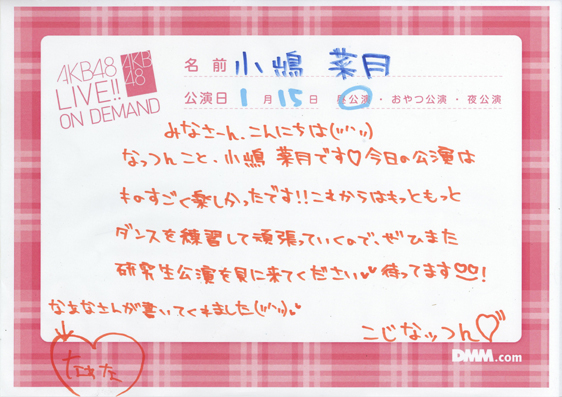 AKB48
LIVE!!
ON DEMAND
AKB
48
名前 小嶋 菜月
公演日 1月15日 昼公演・おやつ公演・夜公演
みなさーん、こんにちは(ツヘツ)
なっつんこと、小嶋 菜月です♡今日の公演は
ものすごく楽しかったです!!これからはもっともっと
ダンスを練習して頑張っていくので、ぜひまた
研究生公演を見に来てください♥♥待ってます!
なぁなさんが書いてくれました(ツヘツ)♥
こじなッつん♡
なぁな
DMM.com